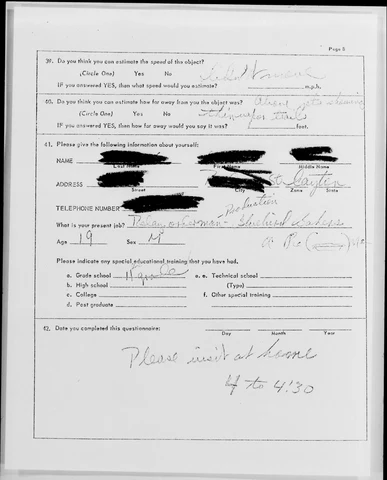 Page 5
39. Do you think you can estimate the speed of the object?
(Circle One) Yes No
IF you answered YES, then what speed would you estimate? m.p.h.
40. Do you think you can estimate how far away from you the object was?
(Circle One) Yes No
IF you answered YES, then how far away would you say it was? feet.
41. Please give the following information about yourself:
NAME
Last Name First Name Middle Name
ADDRESS Dayton
Street City Zone State
TELEPHONE NUMBER
What is your present job?
Age 19 Sex M
Please indicate any special educational training that you have had.
a. Grade school grade e. e. Technical school
b. High school (Type)
c. College f. Other special training
d. Post graduate
42. Date you completed this questionnaire:
Day Month Year
Please visit at home
to 4:30